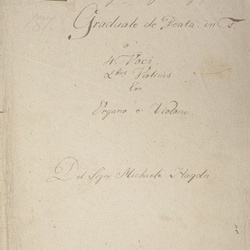 Graduale de Beata in F
a
4 Voci
2bus Violinis
Con
Organo e Violone
Del Sigre Michaele Haydn